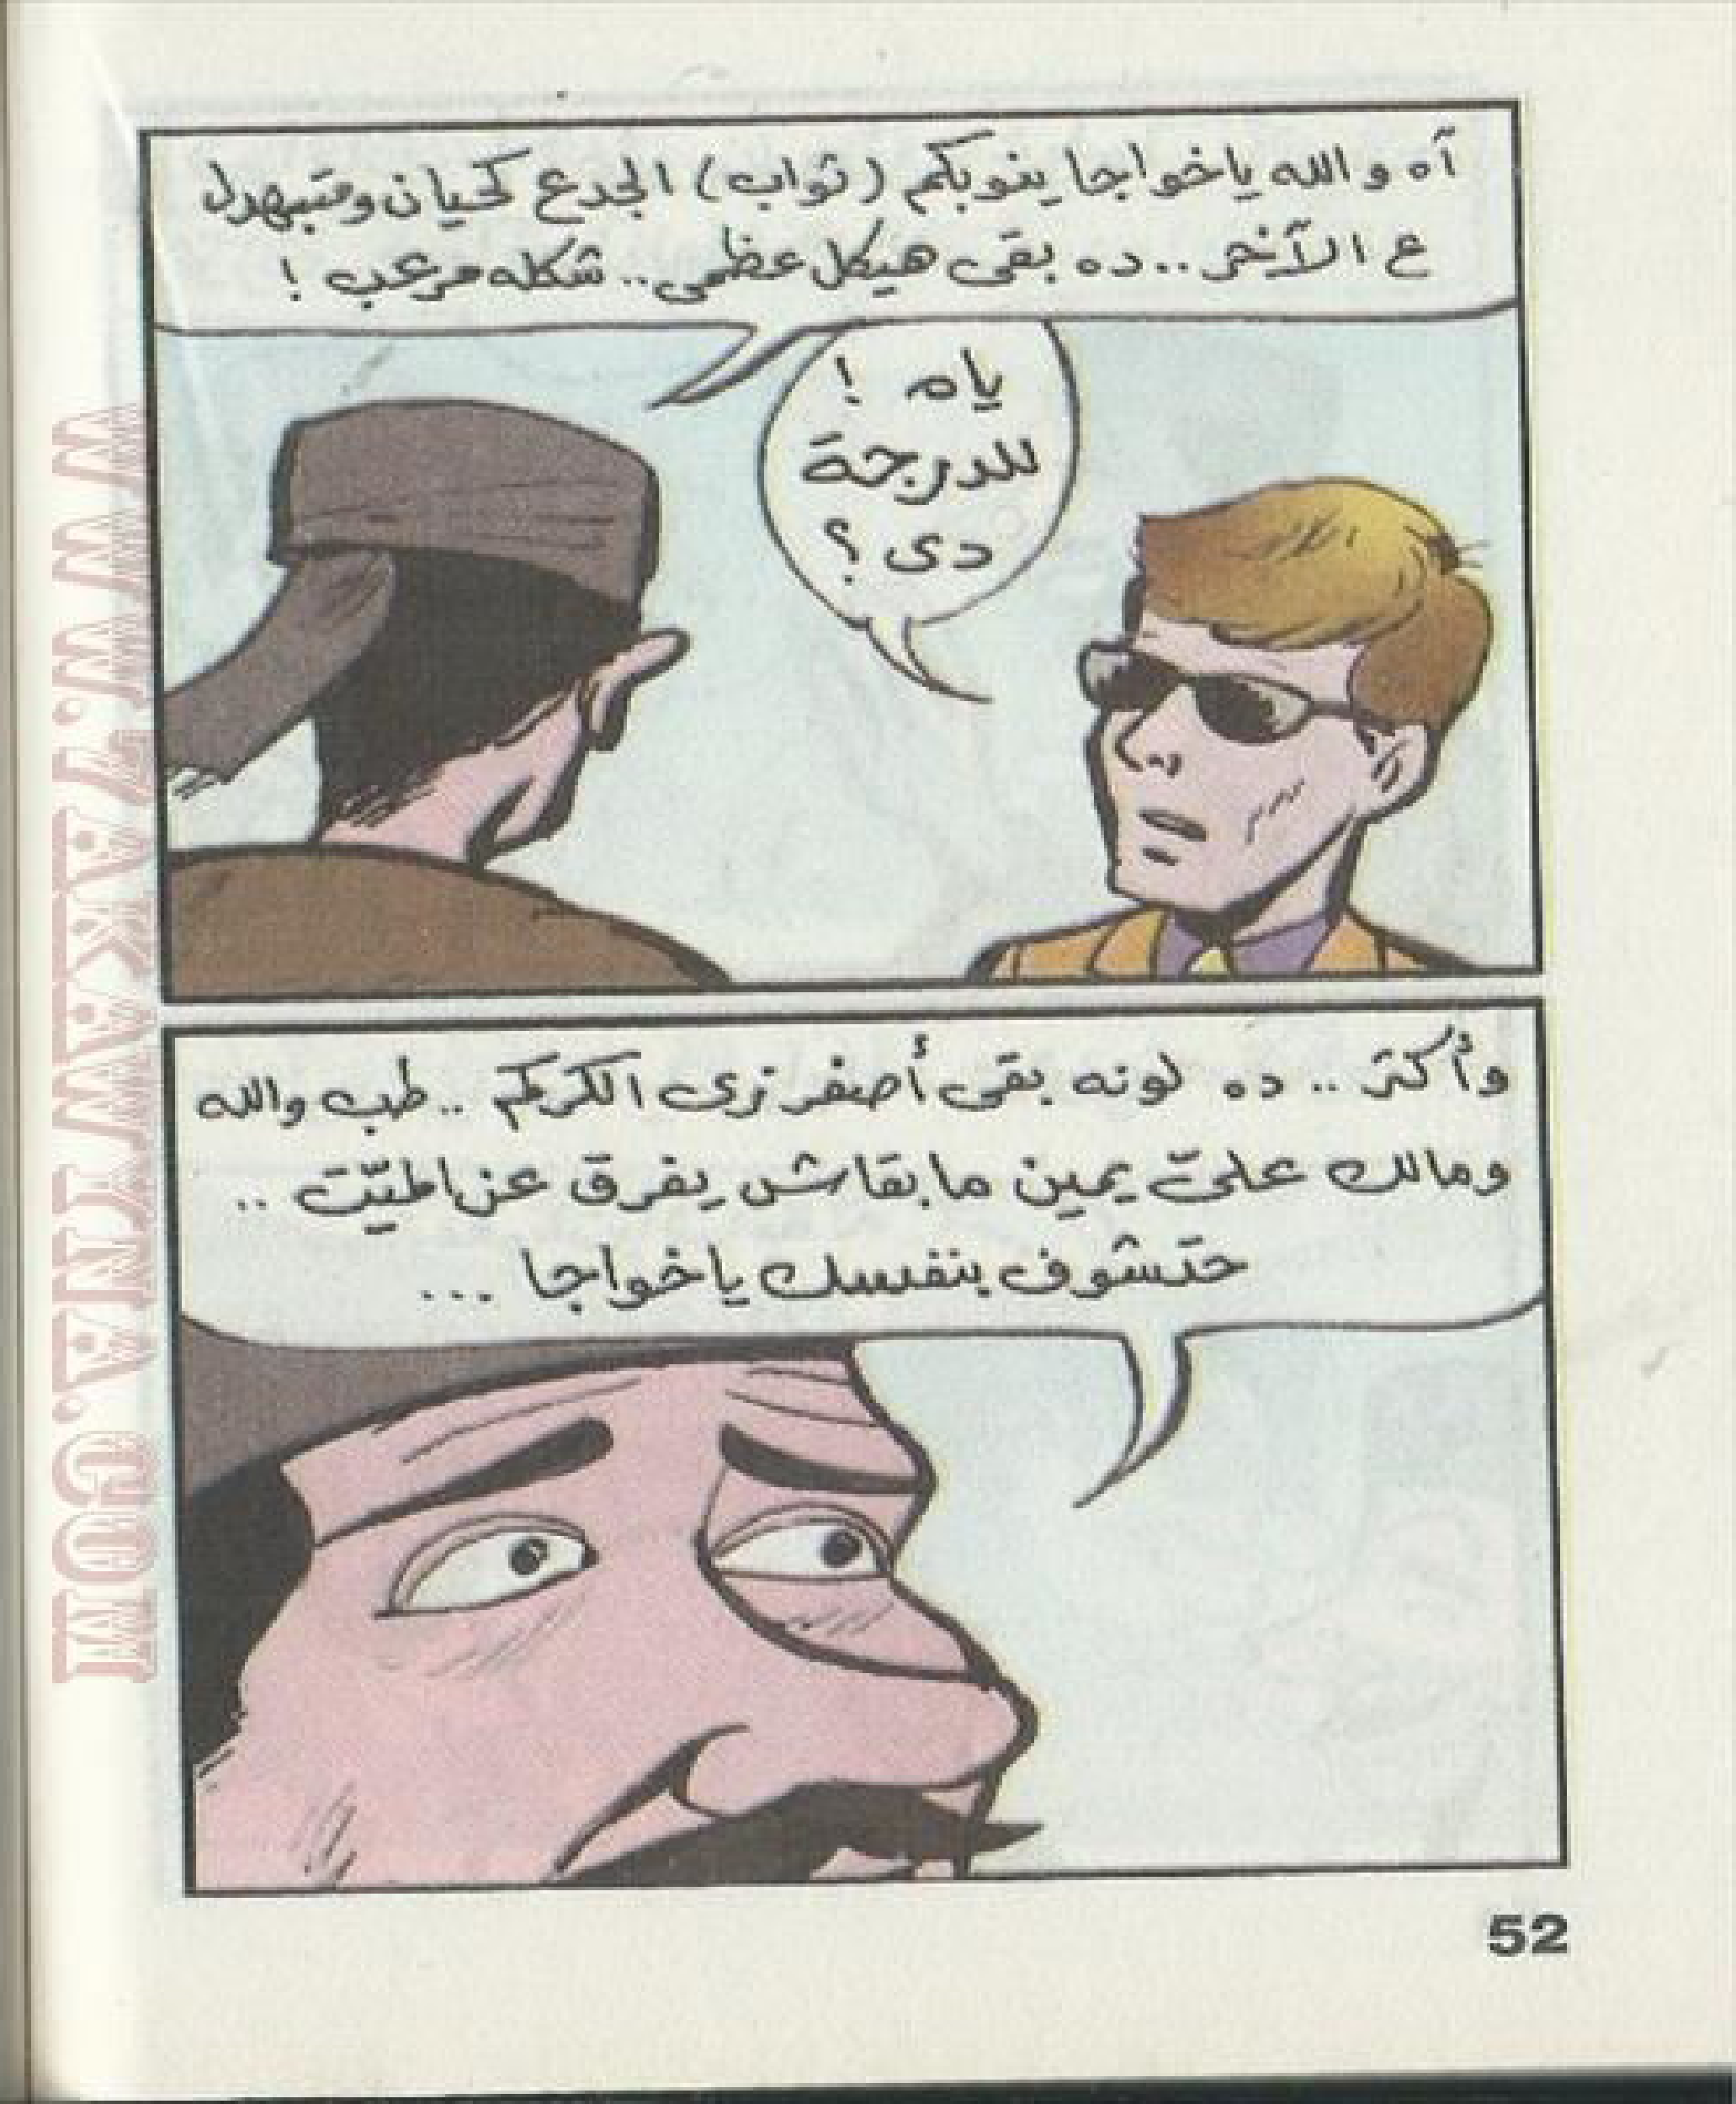 آه والله ياخواجا ينوبكم (ثواب) الجدع كحيان ومتبهدل
ع الآخر .. ده بقى هيكل عظمى .. شكله مرعب !
ياه !
للدرجة
دى ؟
وأكتر .. ده لونه بقى أصفر زى الكركم .. طب والله
ومالك علىّ يمين مابقاش يفرق عن الميّت ..
حتشوف بنفسك ياخواجا ...
52
WWW.TAKAWTNA.COM